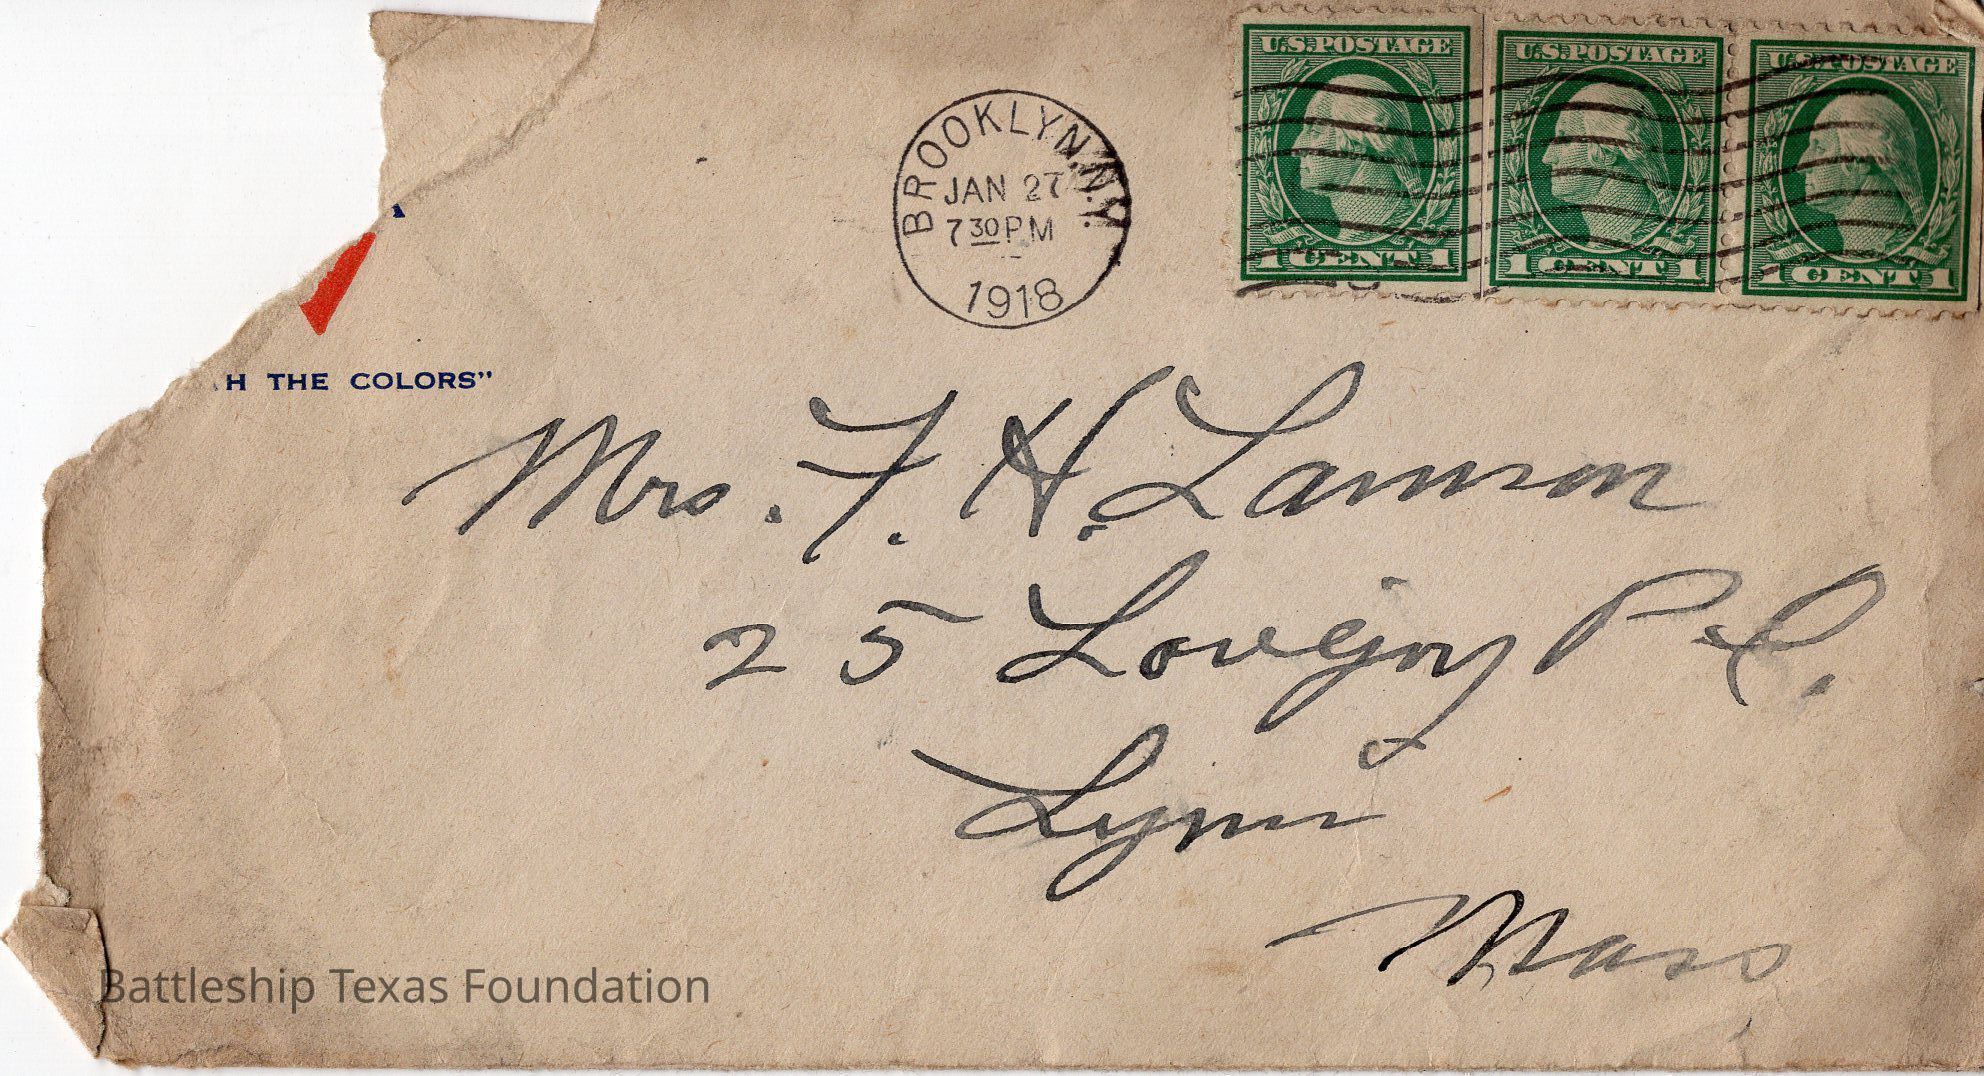 U.S. POSTAGE U.S. POSTAGE U.S. POSTAGE
1 CENT 1 1 CENT 1 1 CENT 1
BROOKLYN, N.Y.
JAN 27
7 30 PM
1918
H THE COLORS"
Mrs. F. H. Lamson
25 Lovejoy Pl.
Lynn
Mass
Battleship Texas Foundation